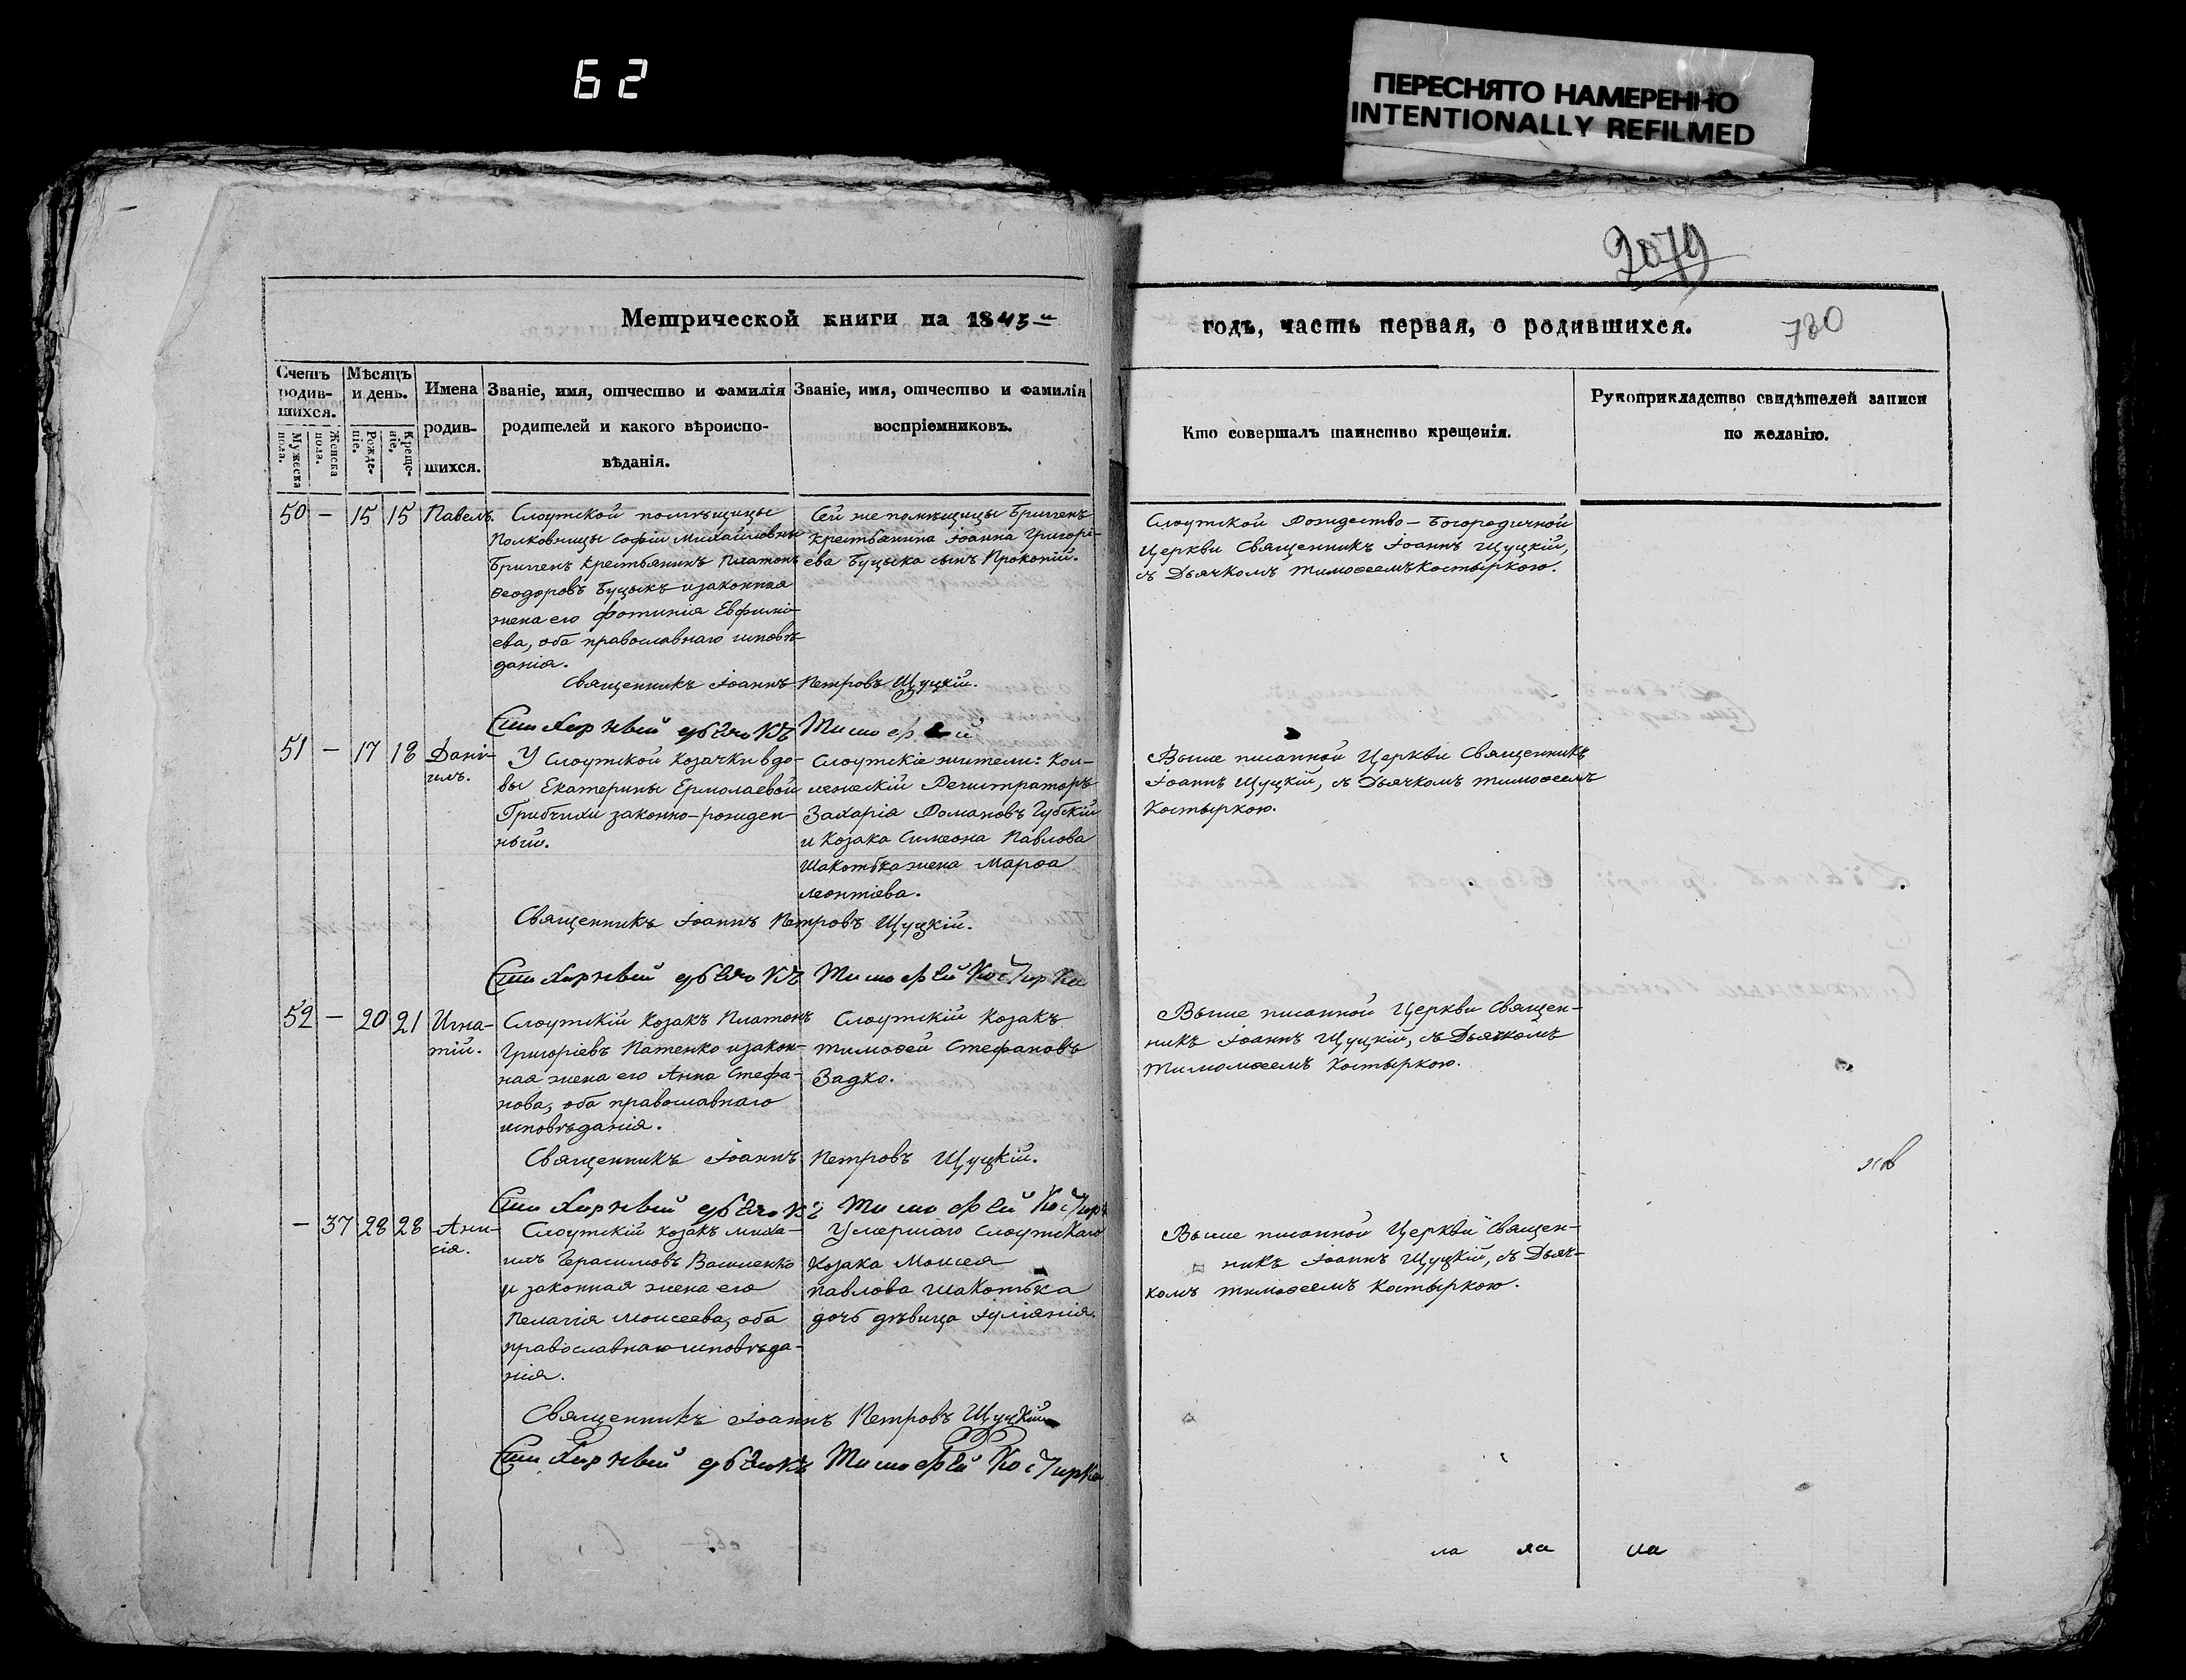 62
ПЕРЕСНЯТО НАМЕРЕННО
INTENTIONALLY REFILMED
2079
780
Метрической книги на 1843 годъ, часть первая, о родившихся.
Счетъ родившихся.
Мужеска пола.
Женска пола.
Мѣсяцъ и день.
Рожденіе.
Крещеніе.
Имена родившихся.
Званіе, имя, отчество и фамилія
родителей и какого вѣроиспо-
вѣданія.
Званіе, имя, отчество и фамилія
воспріемниковъ.
Кто совершалъ таинство крещенія.
Рукоприкладство свидѣтелей записи
по желанію.
50 — 15 15 Павелъ.
Слоутской помѣщицы
Полковницы Софіи Михайловны
Бриггенъ крестьянинъ Платонъ
Ѳеодоровъ Буцыкъ и законная
жена его Фотинія Евфимі-
ева, оба православнаго исповѣ-
данія.
Сей же помѣщицы Бриггенъ
крестьянина Іоанна Григорі-
ева Буцыка сынъ Прокопій.
Слоутской Рождество-Богородичной
Церкви Священникъ Іоаннъ Щуцкій,
съ Дьячкомъ Тимоѳеемъ Костыркою.
Священникъ Іоаннъ Петровъ Щуцкій.
Стихарный дьячокъ Тимофей
51 — 17 18 Дані-
илъ.
У Слоутской козачки вдо-
вы Екатерины Ермолаевой
Грибчихи законно-рожден-
ный.
Слоутскіе жители: Кол-
лежскій Регистраторъ
Захарія Романовъ Губскій
и козака Симеона Павлова
Шакотька жена Марѳа
Леонтіева.
Выше писанной Церкви Священникъ
Іоаннъ Щуцкій, съ Дьячкомъ Тимоѳеемъ
Костыркою.
Священникъ Іоаннъ Петровъ Щуцкій.
Стихарный дьячокъ Тимофей Костирка
52 — 20 21 Игна-
тій.
Слоутскій козакъ Платонъ
Григоріевъ Патенко и закон-
ная жена его Анна Стефа-
нова, оба православнаго
исповѣданія.
Слоутскій козакъ
Тимоѳей Стефановъ
Задко.
Выше писанной Церкви Священ-
никъ Іоаннъ Щуцкій, съ Дьячкомъ
Костыркою.
Священникъ Іоаннъ Петровъ Щуцкій.
Стихарный дьячокъ Тимофей
— 37 28 28 Ани-
сія.
Слоутскій козакъ Миха-
илъ Герасимовъ Василенко
и законная жена его
Пелагія Моисеева, оба
православнаго исповѣда-
нія.
Умершаго Слоутскаго
козака Моисея
Павлова Шакотька
дочь дѣвица Іуліанія.
Выше писанной Церкви Священ-
никъ Іоаннъ Щуцкій, съ Дьяч-
комъ Тимоѳеемъ Костыркою.
Священникъ Іоаннъ Петровъ Щуцкій
Стихарный дьячокъ Тимофей Костирка